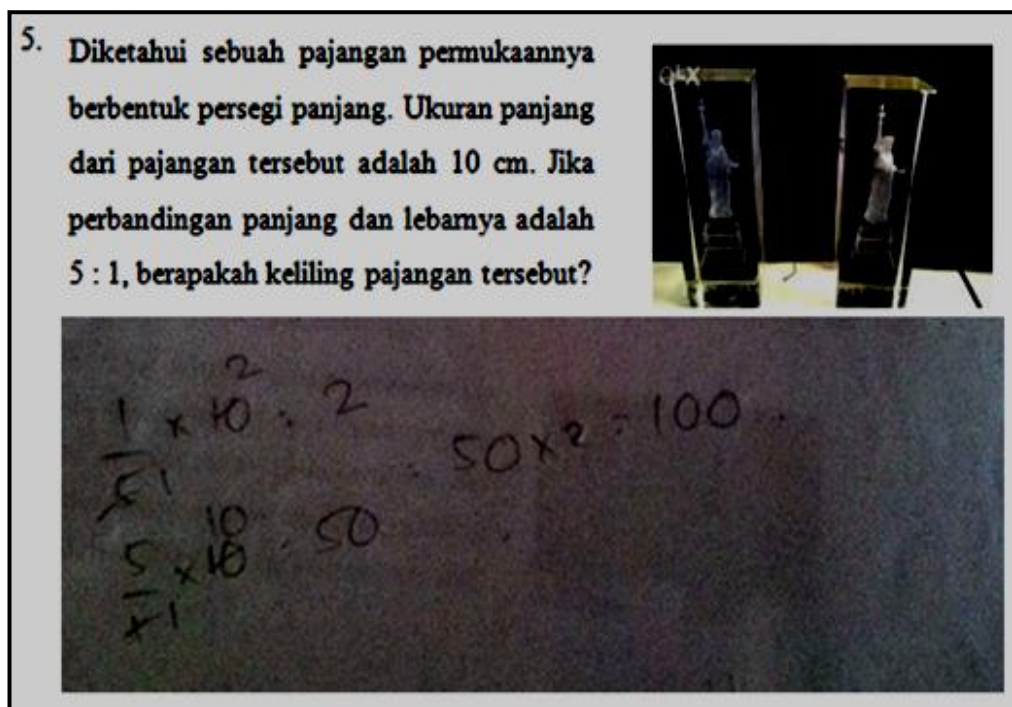 5. Diketahui sebuah pajangan permukaannya
berbentuk persegi panjang. Ukuran panjang
dari pajangan tersebut adalah 10 cm. Jika
perbandingan panjang dan lebarnya adalah
5 : 1, berapakah keliling pajangan tersebut?
OLX
2
1/5 1 x 10 : 2
50 x 2 = 100
10
5/1 1 x 10 : 50